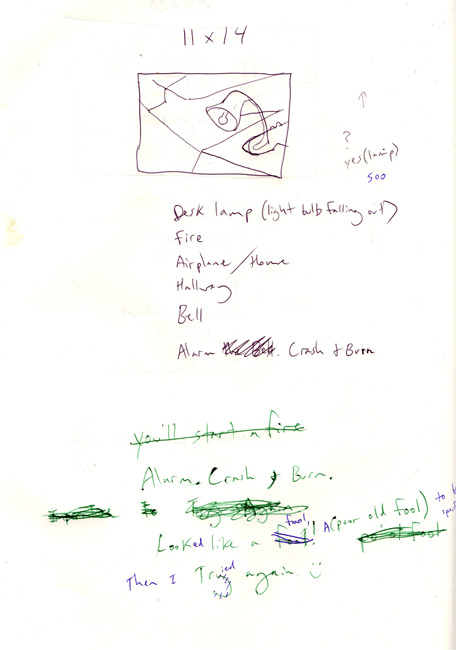 11 x 14
?
yes (lamp)
500
Desk lamp (light bulb falling out)
Fire
Airplane / Home
Hallway
Bell
Alarm. Crash & Burn
you'll start a fire
Alarm. Crash & Burn.
to b
Looked like a fool, A (poor old fool)
Then I Tried again. :)